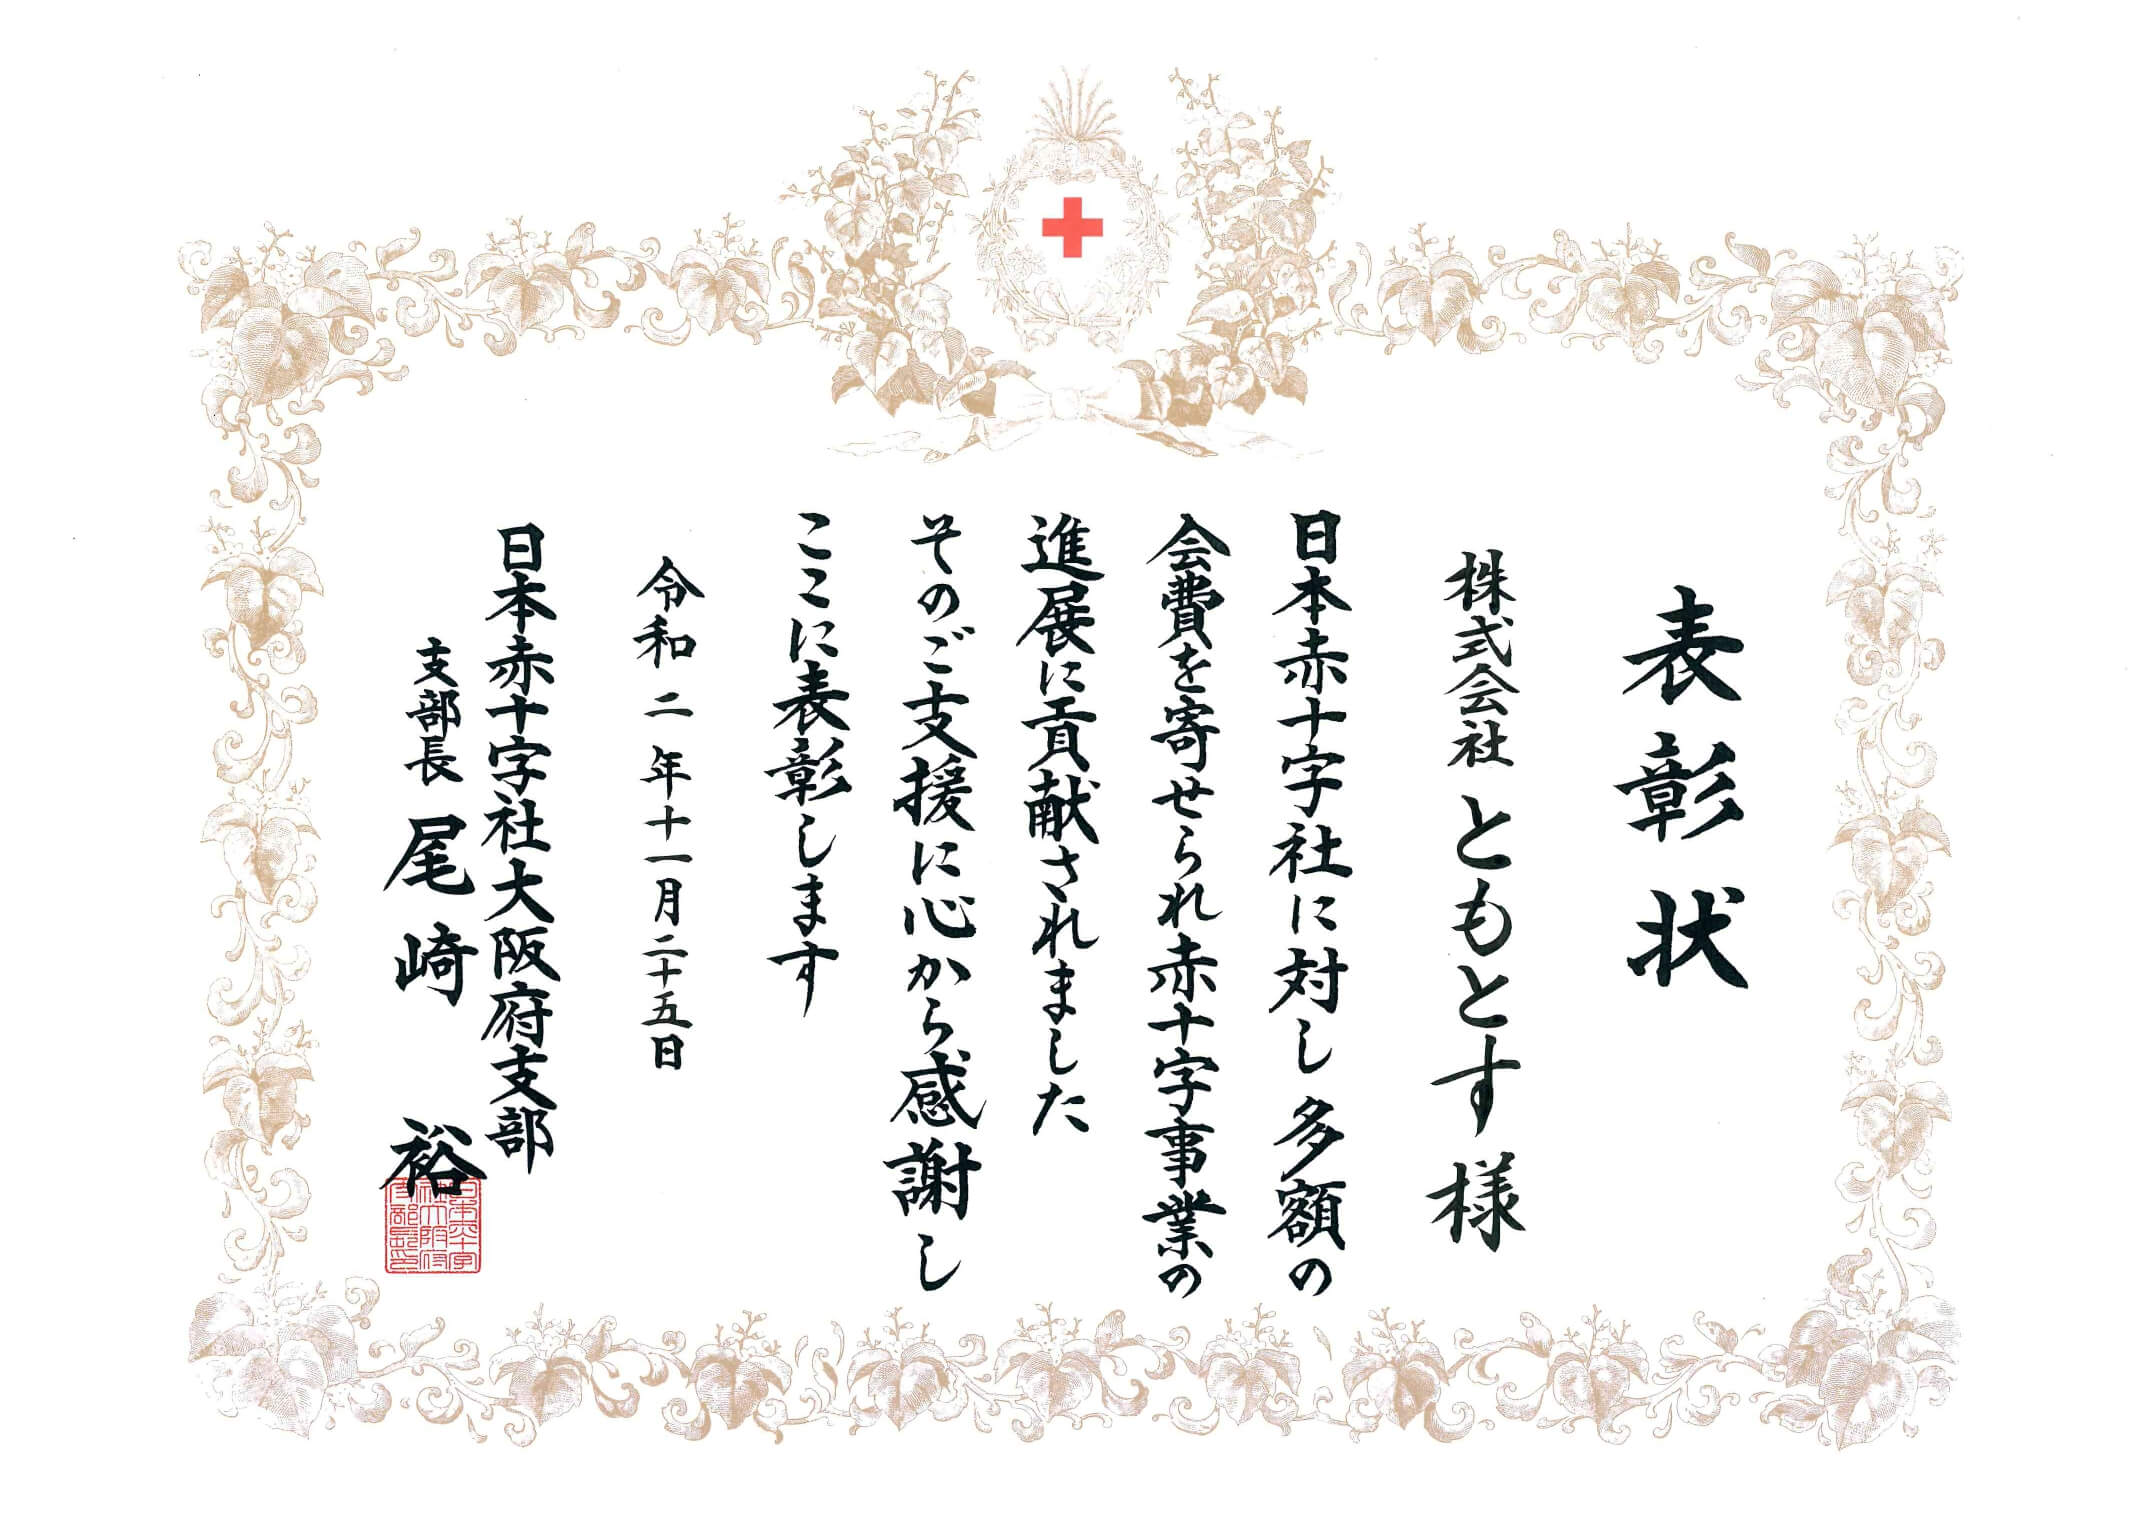 表彰状
株式会社ともとす様
日本赤十字社に対し多額の
会費を寄せられ赤十字事業の
進展に貢献されました
そのご支援に心から感謝し
ここに表彰します
令和二年十一月二十五日
日本赤十字社大阪府支部
支部長 尾崎 裕
日本赤十字
社大阪府
支部長印